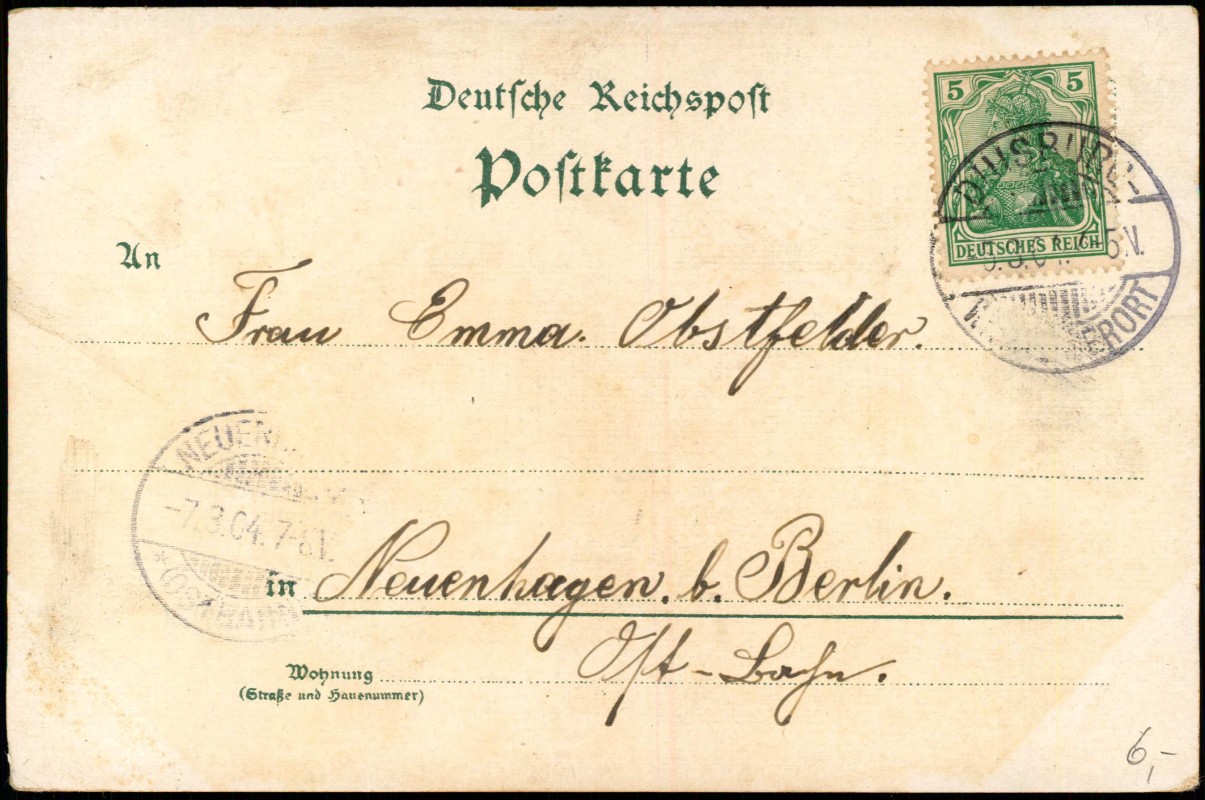 Deutsche Reichspost
Postkarte
5 5
DEUTSCHES REICH
DUISBURG-
5 V.
ERORT
An
Frau Emma Obstfelder.
NEUENH
-7.3.04. 7-8V.
* (OSTBAHN
in Neuenhagen. b. Berlin.
Ost-Bahn.
Wohnung
(Straße und Hausnummer)
6,-